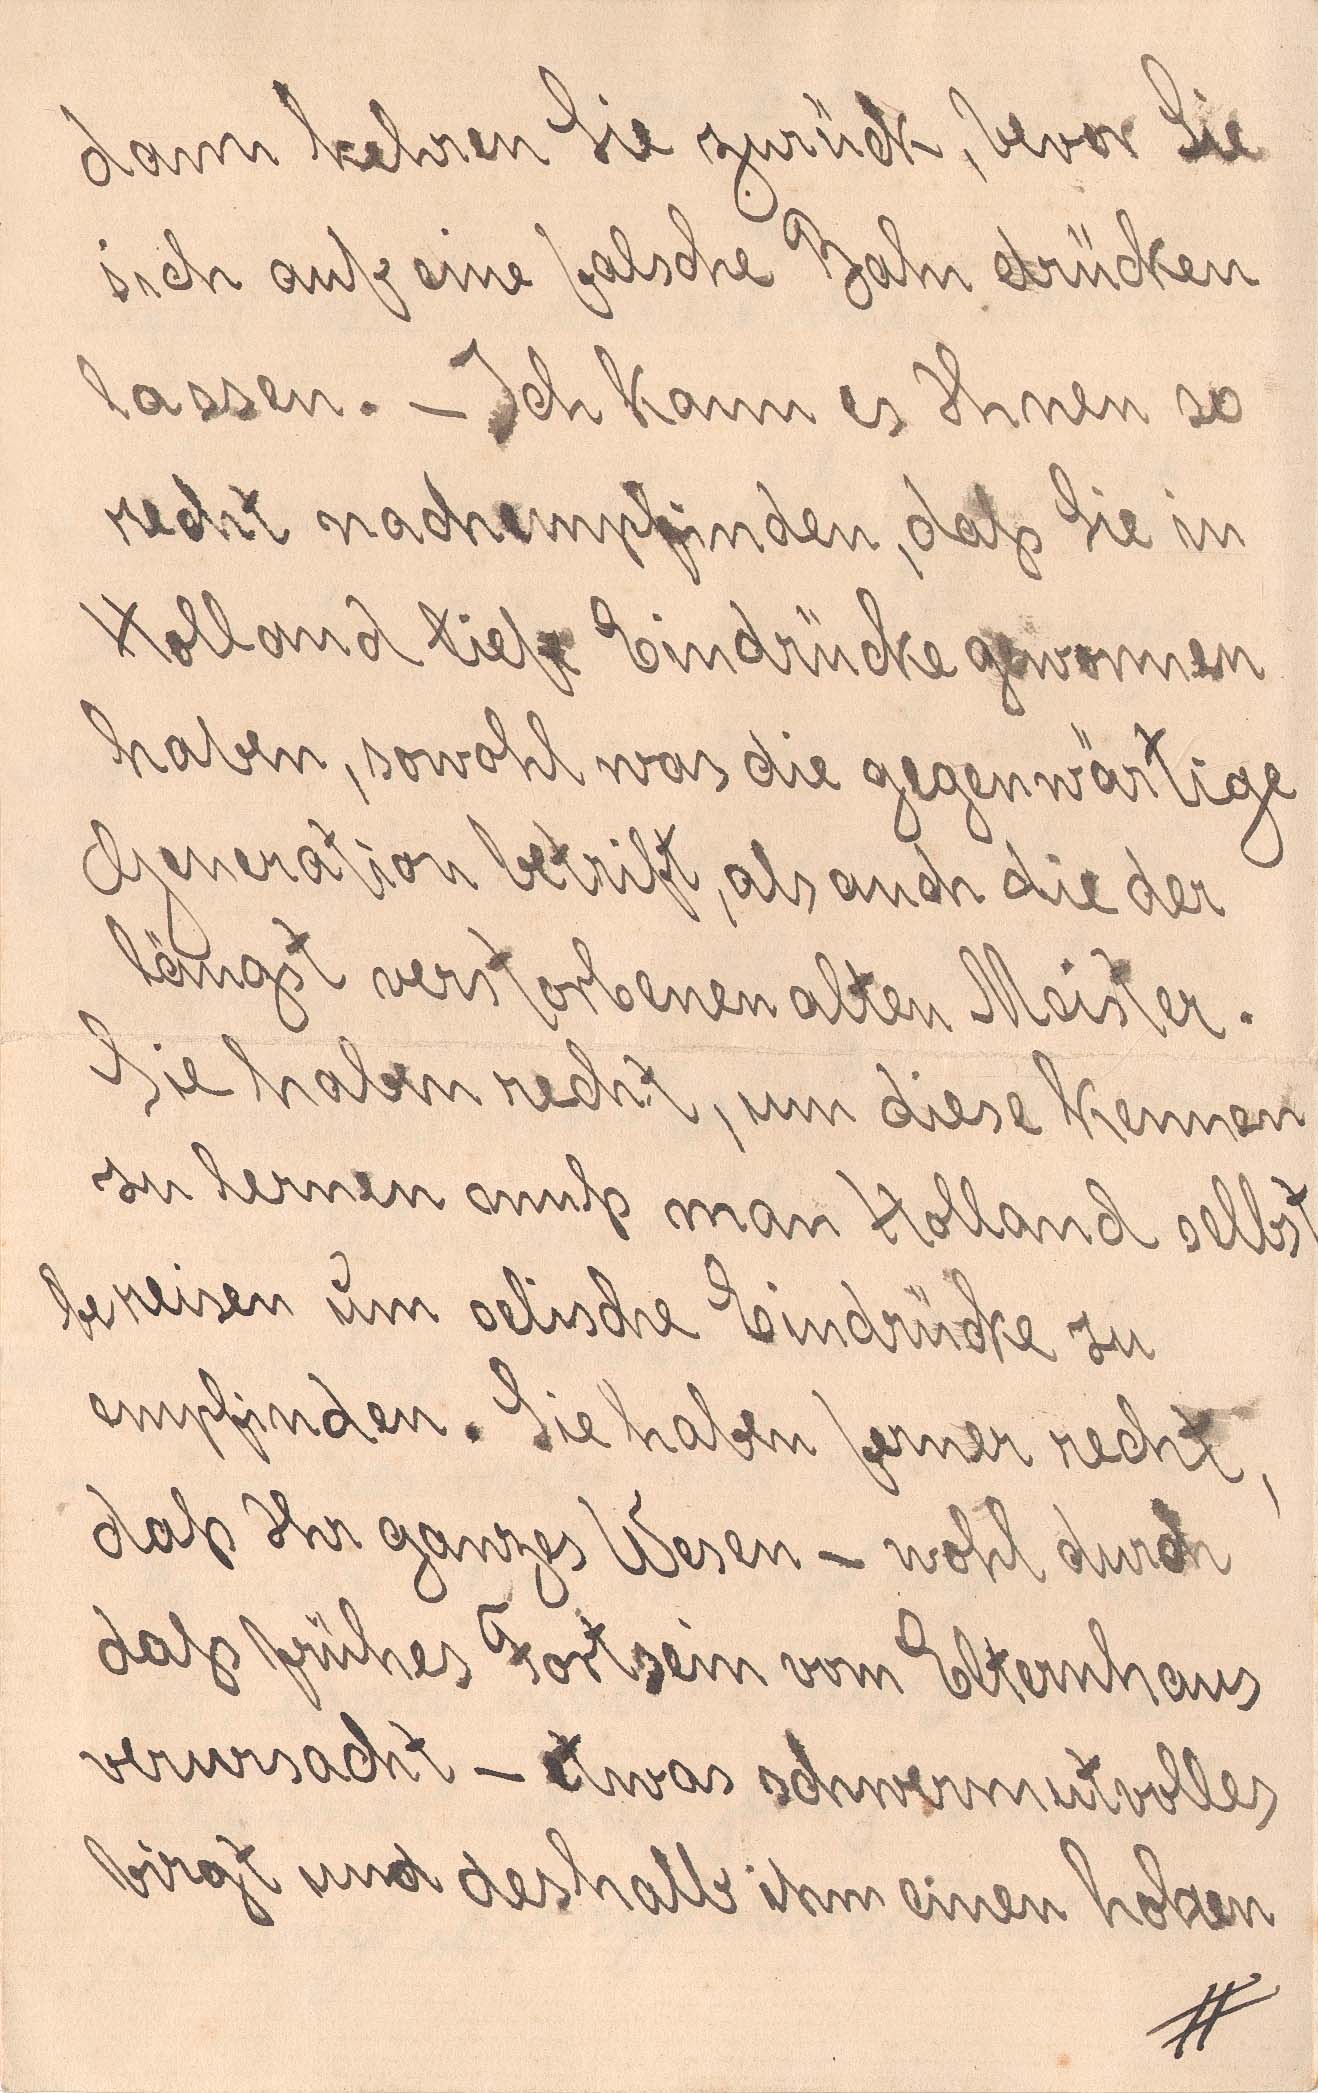 dann kehren Sie zurück, bevor Sie
sich auf eine falsche Bahn drücken
lassen. – Ich kann es Ihnen so
recht nachempfinden, daß Sie in
Holland tiefe Eindrücke gewonnen
haben, sowohl was die gegenwärtige
Generation betrift, als auch die der
längst verstorbenen alten Meister.
Sie haben recht, um diese kennen
zu lernen muß man Holland selbst
bereisen um selische Eindrücke zu
empfinden. Sie haben ferner recht,
daß Ihr ganzes Wesen – wohl durch
daß frühes Fortsein vom Elternhaus
verursacht – etwas schwermutvolles
birgt und deshalb ihm einen hohen